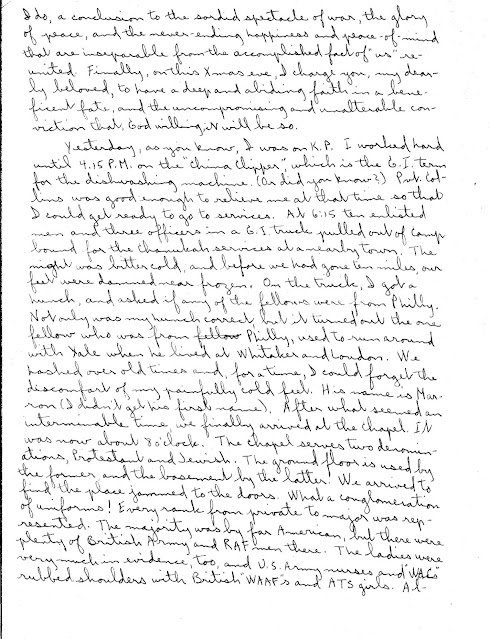 I do, a conclusion to the sordid spectacle of war, the glory
of peace, and the never-ending happiness and peace-of-mind
that are inseparable from the accomplished fact of "us" re-
united. Finally, on this Xmas eve, I charge you, my dear-
ly beloved, to have a deep and abiding faith in a bene-
ficent fate, and the uncompromising and unalterable con-
viction that, God willing, it will be so.
Yesterday, as you know, I was on K.P. I worked hard
until 4:15 P.M. on the "China Clipper", which is the G.I. term
for the dishwashing machine. (Or did you know?) Pvt. Col-
lins was good enough to relieve me at that time so that
I could get ready to go to services. At 6:15 ten enlisted
men and three officers in a G.I. truck pulled out of camp
bound for the Chanukah services at a nearby town. The
night was bitter cold, and before we had gone ten miles, our
feet were damned near frozen. On the truck, I got a
hunch, and asked if any of the fellows were from Philly.
Not only was my hunch correct but it turned out the one
fellow who was from fellow Philly, used to run around
with Yale when he lived at Whitaker and Loudon. We
hashed over old times and, for a time, I could forget the
discomfort of my painfully cold feet. His name is Mar-
ron (I didn't get his first name). After what seemed an
interminable time, we finally arrived at the chapel. It
was now about 8 o'clock. The chapel serves two denomin-
ations, Protestant and Jewish. The ground floor is used by
the former, and the basement by the latter. We arrived to
find the place jammed to the doors. What a conglomeration
of uniforms! Every rank from private to major was rep-
resented. The majority was by far American, but there were
plenty of British Army and RAF men there. The ladies were
very much in evidence, too, and U.S. Army nurses and "WACs"
rubbed shoulders with British "WAAFs" and ATS girls. Al-